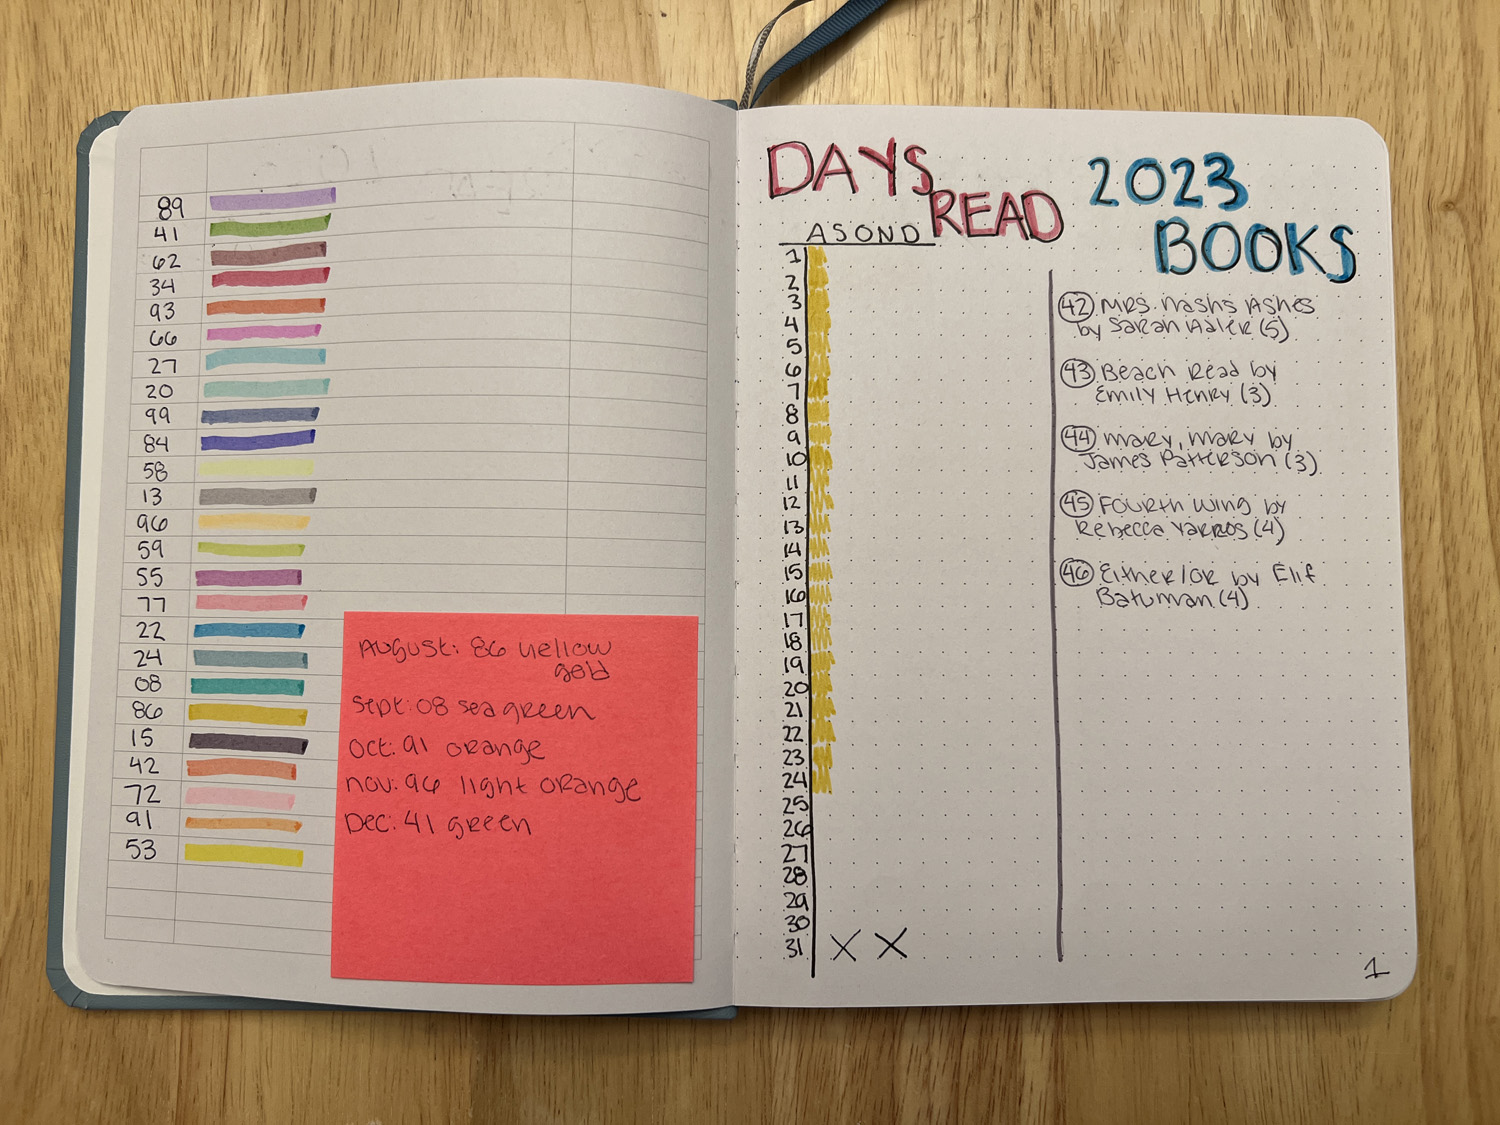 89
41
62
34
93
66
27
20
99
84
58
13
96
59
55
77
22
24
08
86
15
42
72
91
53
August: 86 yellow
gold
Sept: 08 sea green
Oct: 91 orange
Nov: 96 light orange
Dec: 41 green
DAYS
READ
A S O N D
1
2
3
4
5
6
7
8
9
10
11
12
13
14
15
16
17
18
19
20
21
22
23
24
25
26
27
28
29
30
31 X X
2023
BOOKS
42 Mrs. Nashs Ashes
by Sarah Adler (5)
43 Beach Read by
Emily Henry (3)
44 Mary, Mary by
James Patterson (3)
45 Fourth Wing by
Rebecca Yarros (4)
46 Either/Or by Elif
Batuman (4)
1